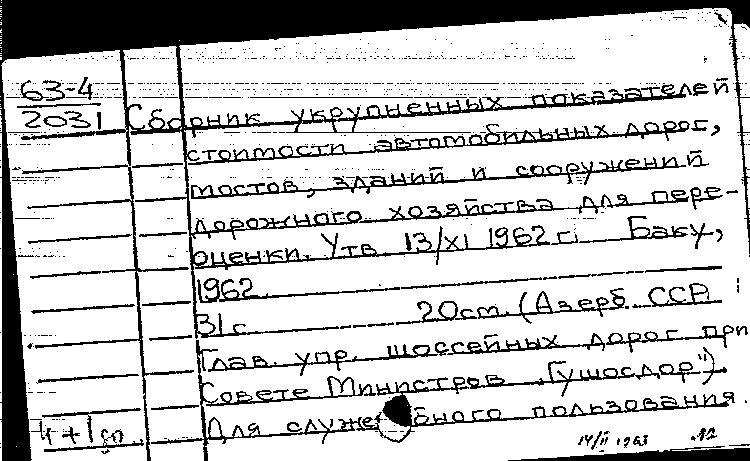 63-4
2031
Сборник укрупненных показателей
стоимости автомобильных дорог,
мостов, зданий и сооружений
дорожного хозяйства для пере-
оценки. Утв 13/XI 1962 г. Баку,
1962.
31 с. 20 см. (Азерб. ССР.
Глав. упр. шоссейных дорог при
Совете Министров "Гушосдор").
Для служебного пользования.
14/II 1963 №2